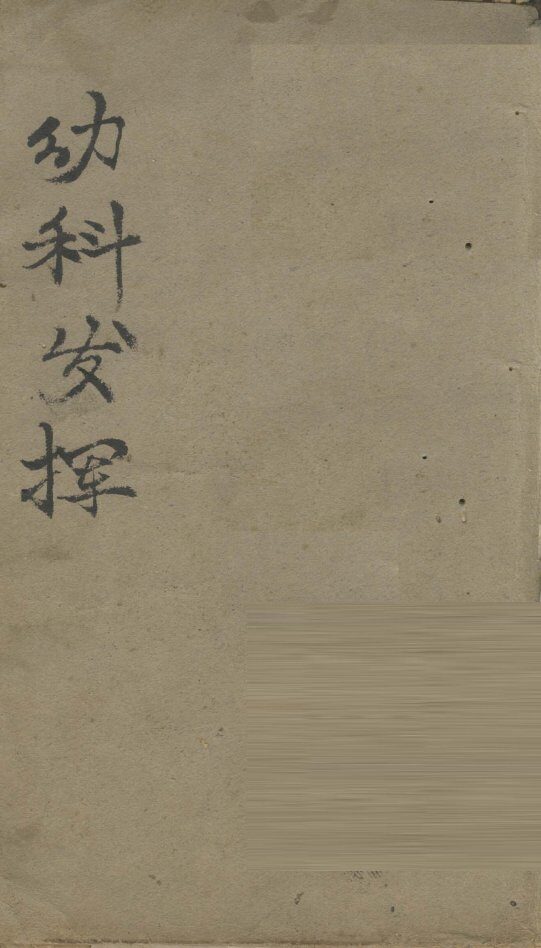 幼科发挥